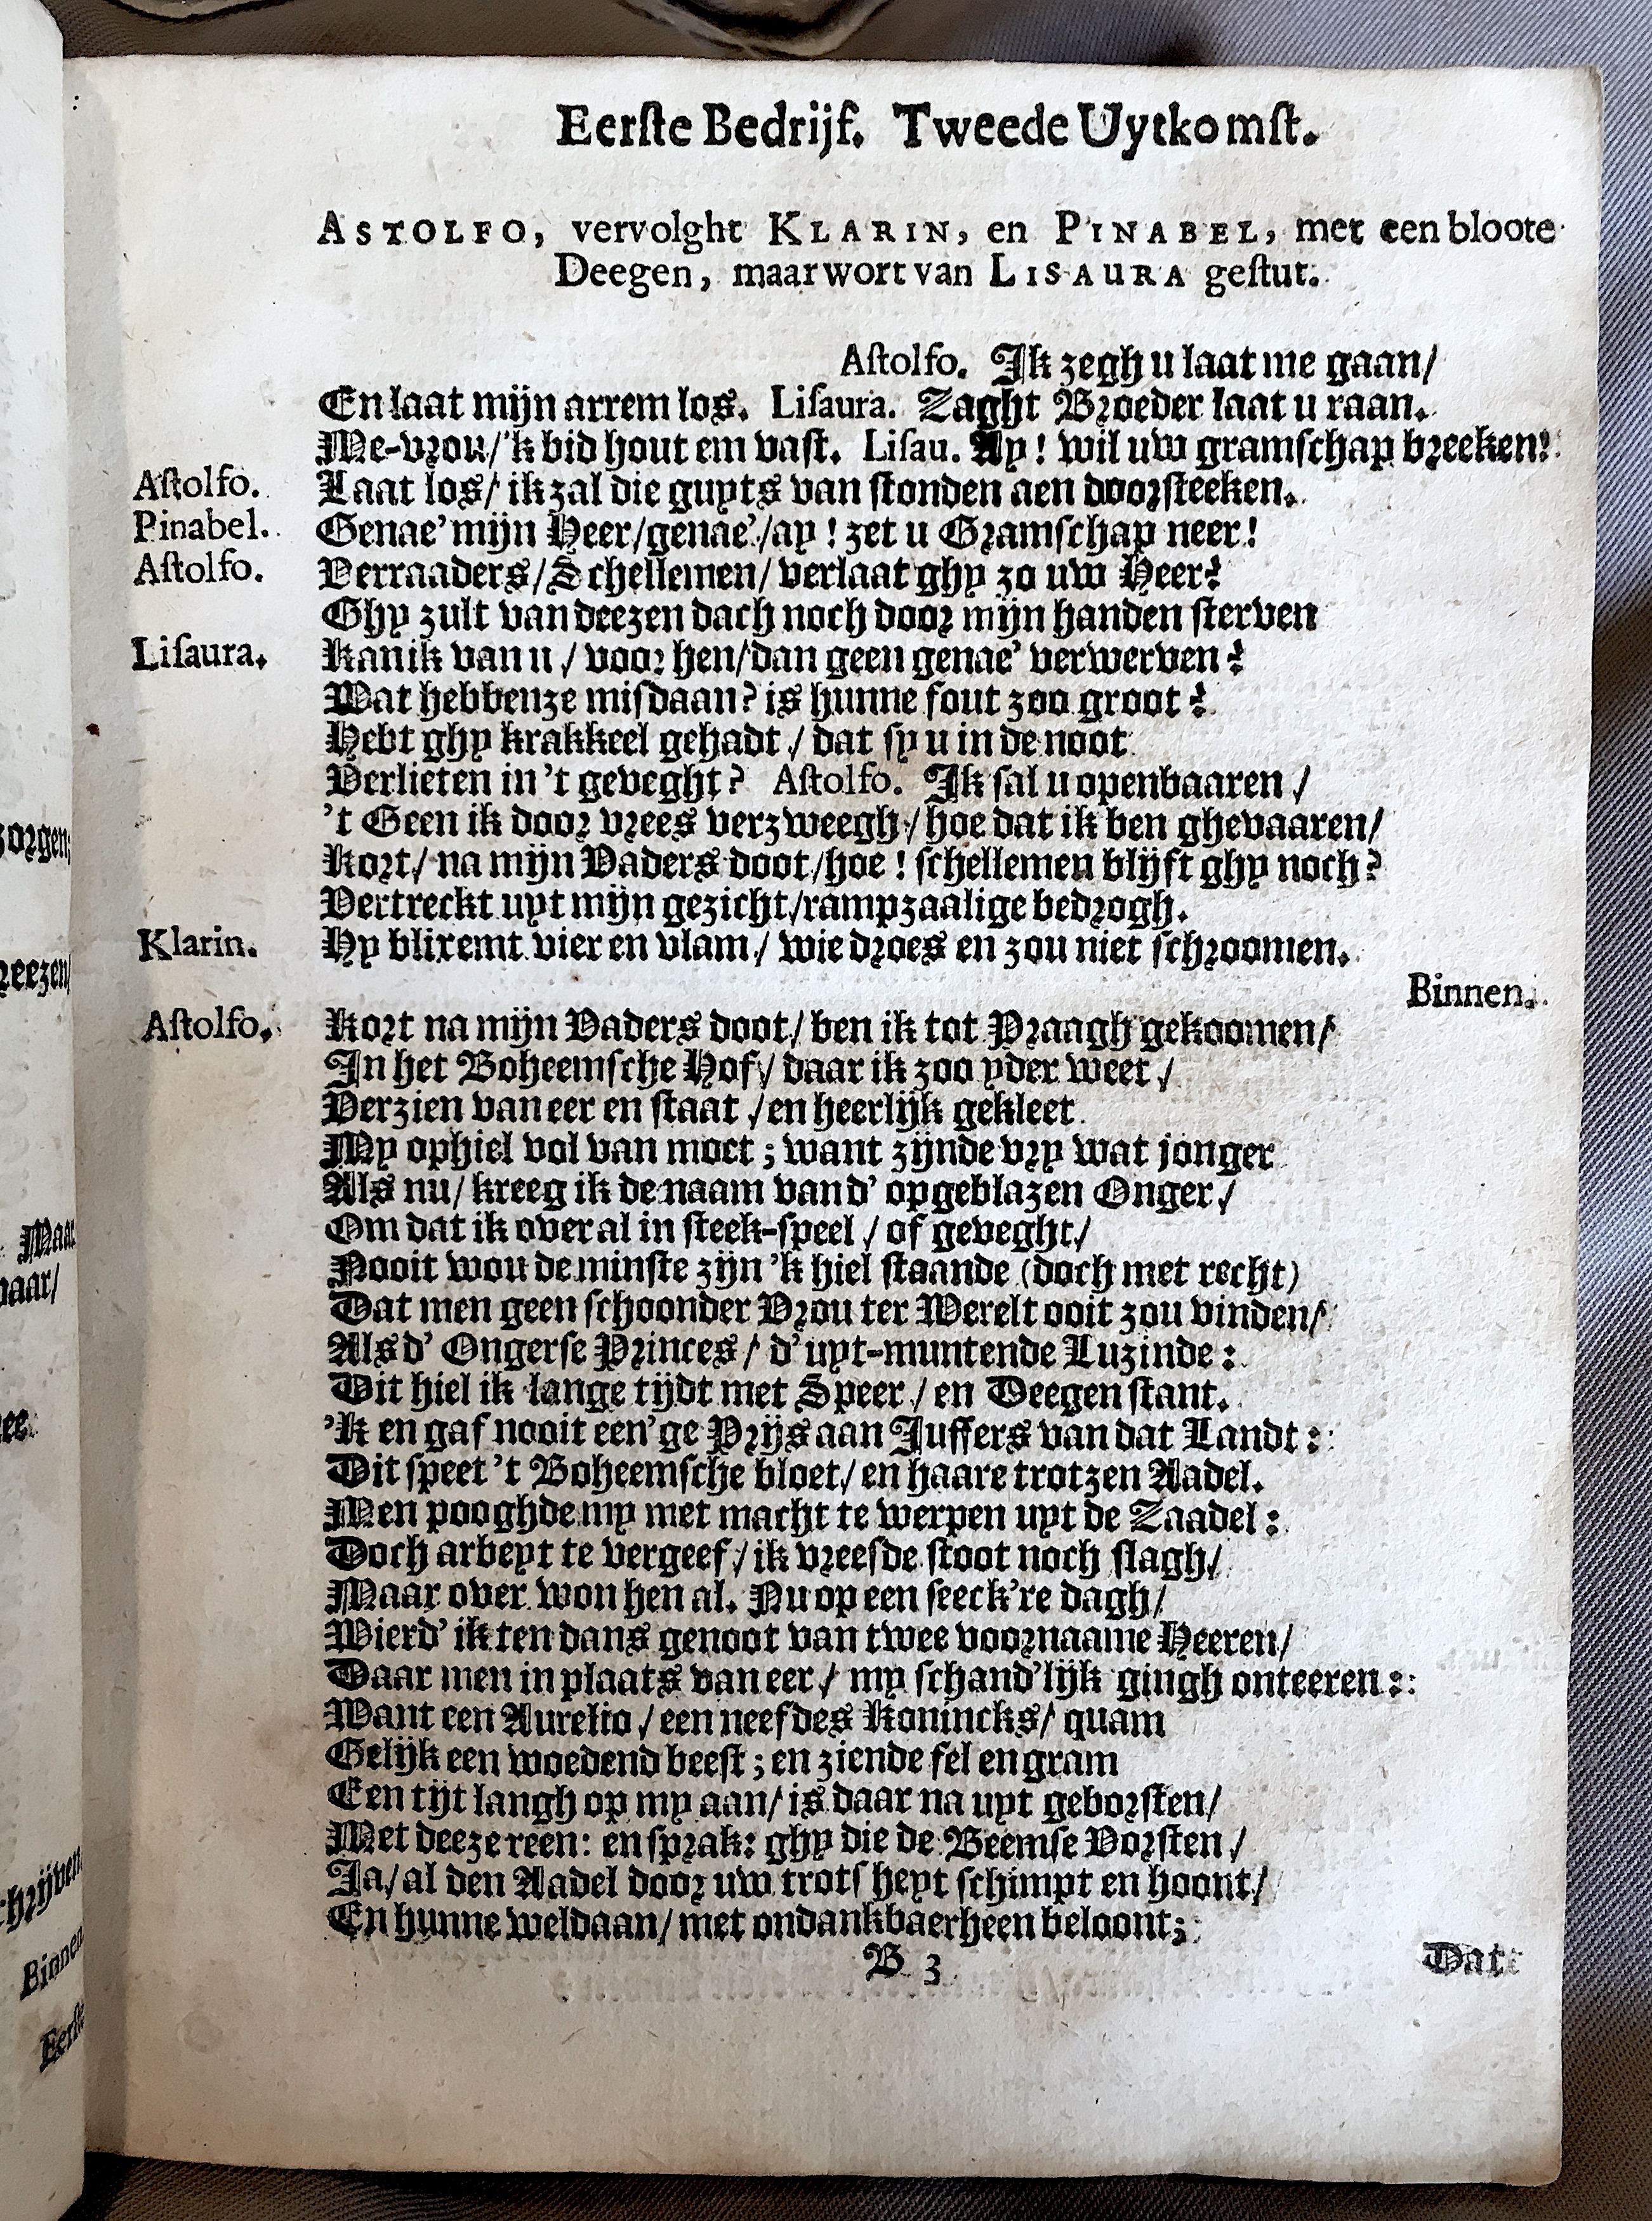 Eerſte Bedrijf. Tweede Uytkomſt.
ASTOLFO, vervolght KLARIN, en PINABEL, met een bloote
Deegen, maar wort van LISAURA geſtut.
Aſtolfo. Ik zegh u laat me gaan/
En laat mijn arrem los. Liſaura. Zaght Broeder laat u raan.
Me-vrou/'k bid hout em vaſt. Liſau. Ay! wil uw gramſchap breeken!
Aſtolfo. Laat los/ ik zal die guyts van ſtonden aen doorſteeken.
Pinabel. Genae' mijn Heer/genae'/ay! zet u Gramſchap neer!
Aſtolfo. Verraaders/Schellemen/ verlaat ghy zo uw Heer?
Ghy zult van deezen dach noch door mijn handen ſterven
Liſaura. Kan ik van u/ voor hen/dan geen genae' verwerven?
Wat hebbenze miſdaan? is hunne fout zoo groot?
Hebt ghy krakkeel gehadt/ dat ſy u in de noot
Verlieten in 't geveght? Aſtolfo. Ik ſal u openbaaren/
't Geen ik door vrees verzweegh/ hoe dat ik ben ghevaaren/
Kort/ na mijn Vaders doot/hoe! ſchellemen blijft ghy noch?
Vertreckt uyt mijn gezicht/rampzaalige bedrogh.
Klarin. Hy blixemt vier en vlam/ wie droes en zou niet ſchroomen.
Binnen.
Aſtolfo. Kort na mijn Vaders doot/ ben ik tot Praagh gekoomen/
In het Boheemſche Hof/ daar ik zoo yder weet/
Verzien van eer en ſtaat/en heerlijk gekleet
My ophiel vol van moet; want zijnde vry wat jonger
Als nu/ kreeg ik de naam van d' opgeblazen Onger/
Om dat ik over al in ſteek-ſpeel/ of geveght/
Nooit wou de minſte zijn 'k hiel ſtaande (doch met recht)
Dat men geen ſchoonder Vrou ter Werelt ooit zou vinden/
Als d' Ongerſe Princes/ d' uyt-muntende Luzinde:
Dit hiel ik lange tijdt met Speer/ en Deegen ſtant.
'K en gaf nooit een'ge Prijs aan Juffers van dat Landt:
Dit ſpeet 't Boheemſche bloet/ en haare trotzen Aadel.
Men pooghde my met macht te werpen uyt de Zaadel:
Doch arbeyt te vergeef/ ik vreeſde ſtoot noch ſlagh/
Maar over won hen al. Nu op een ſeeck're dagh/
Wierd' ik ten dans genoot van twee voornaame Heeren/
Daar men in plaats van eer/ my ſchand'lijk gingh onteeren:
Want een Aurelio/ een neef des Konincks/ quam
Gelijk een woedend beeſt; en ziende fel en gram
Een tijt langh op my aan/ is daar na uyt geborſten/
Met deeze reen: en ſprak: ghy die de Beemſe Vorſten/
Ja/ al den Aadel door uw trotſ heyt ſchimpt en hoont/
En hunne weldaan/ met ondankbaerheen beloont;
B 3
Dat
zorgen;
reezen/
Maar
baar/
ee.
chrijven
Binnen
Eerſte